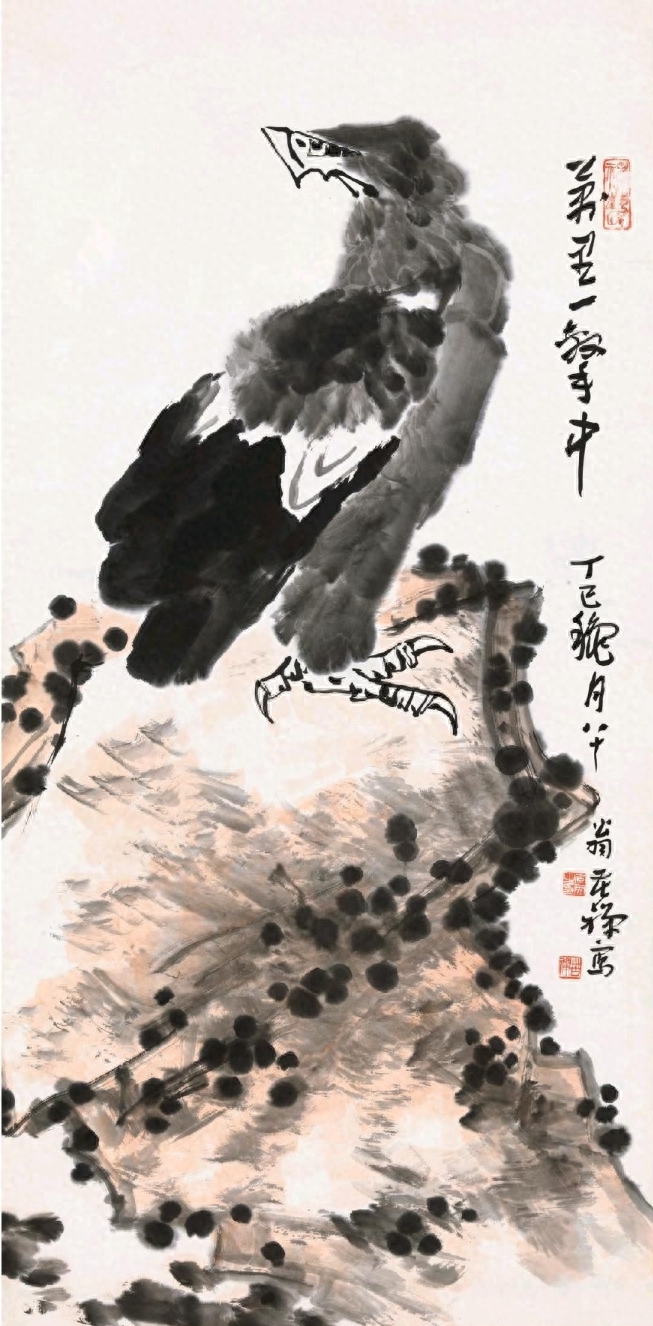 萬里一擊中
丁巳穐月八十
翁苦禪寫